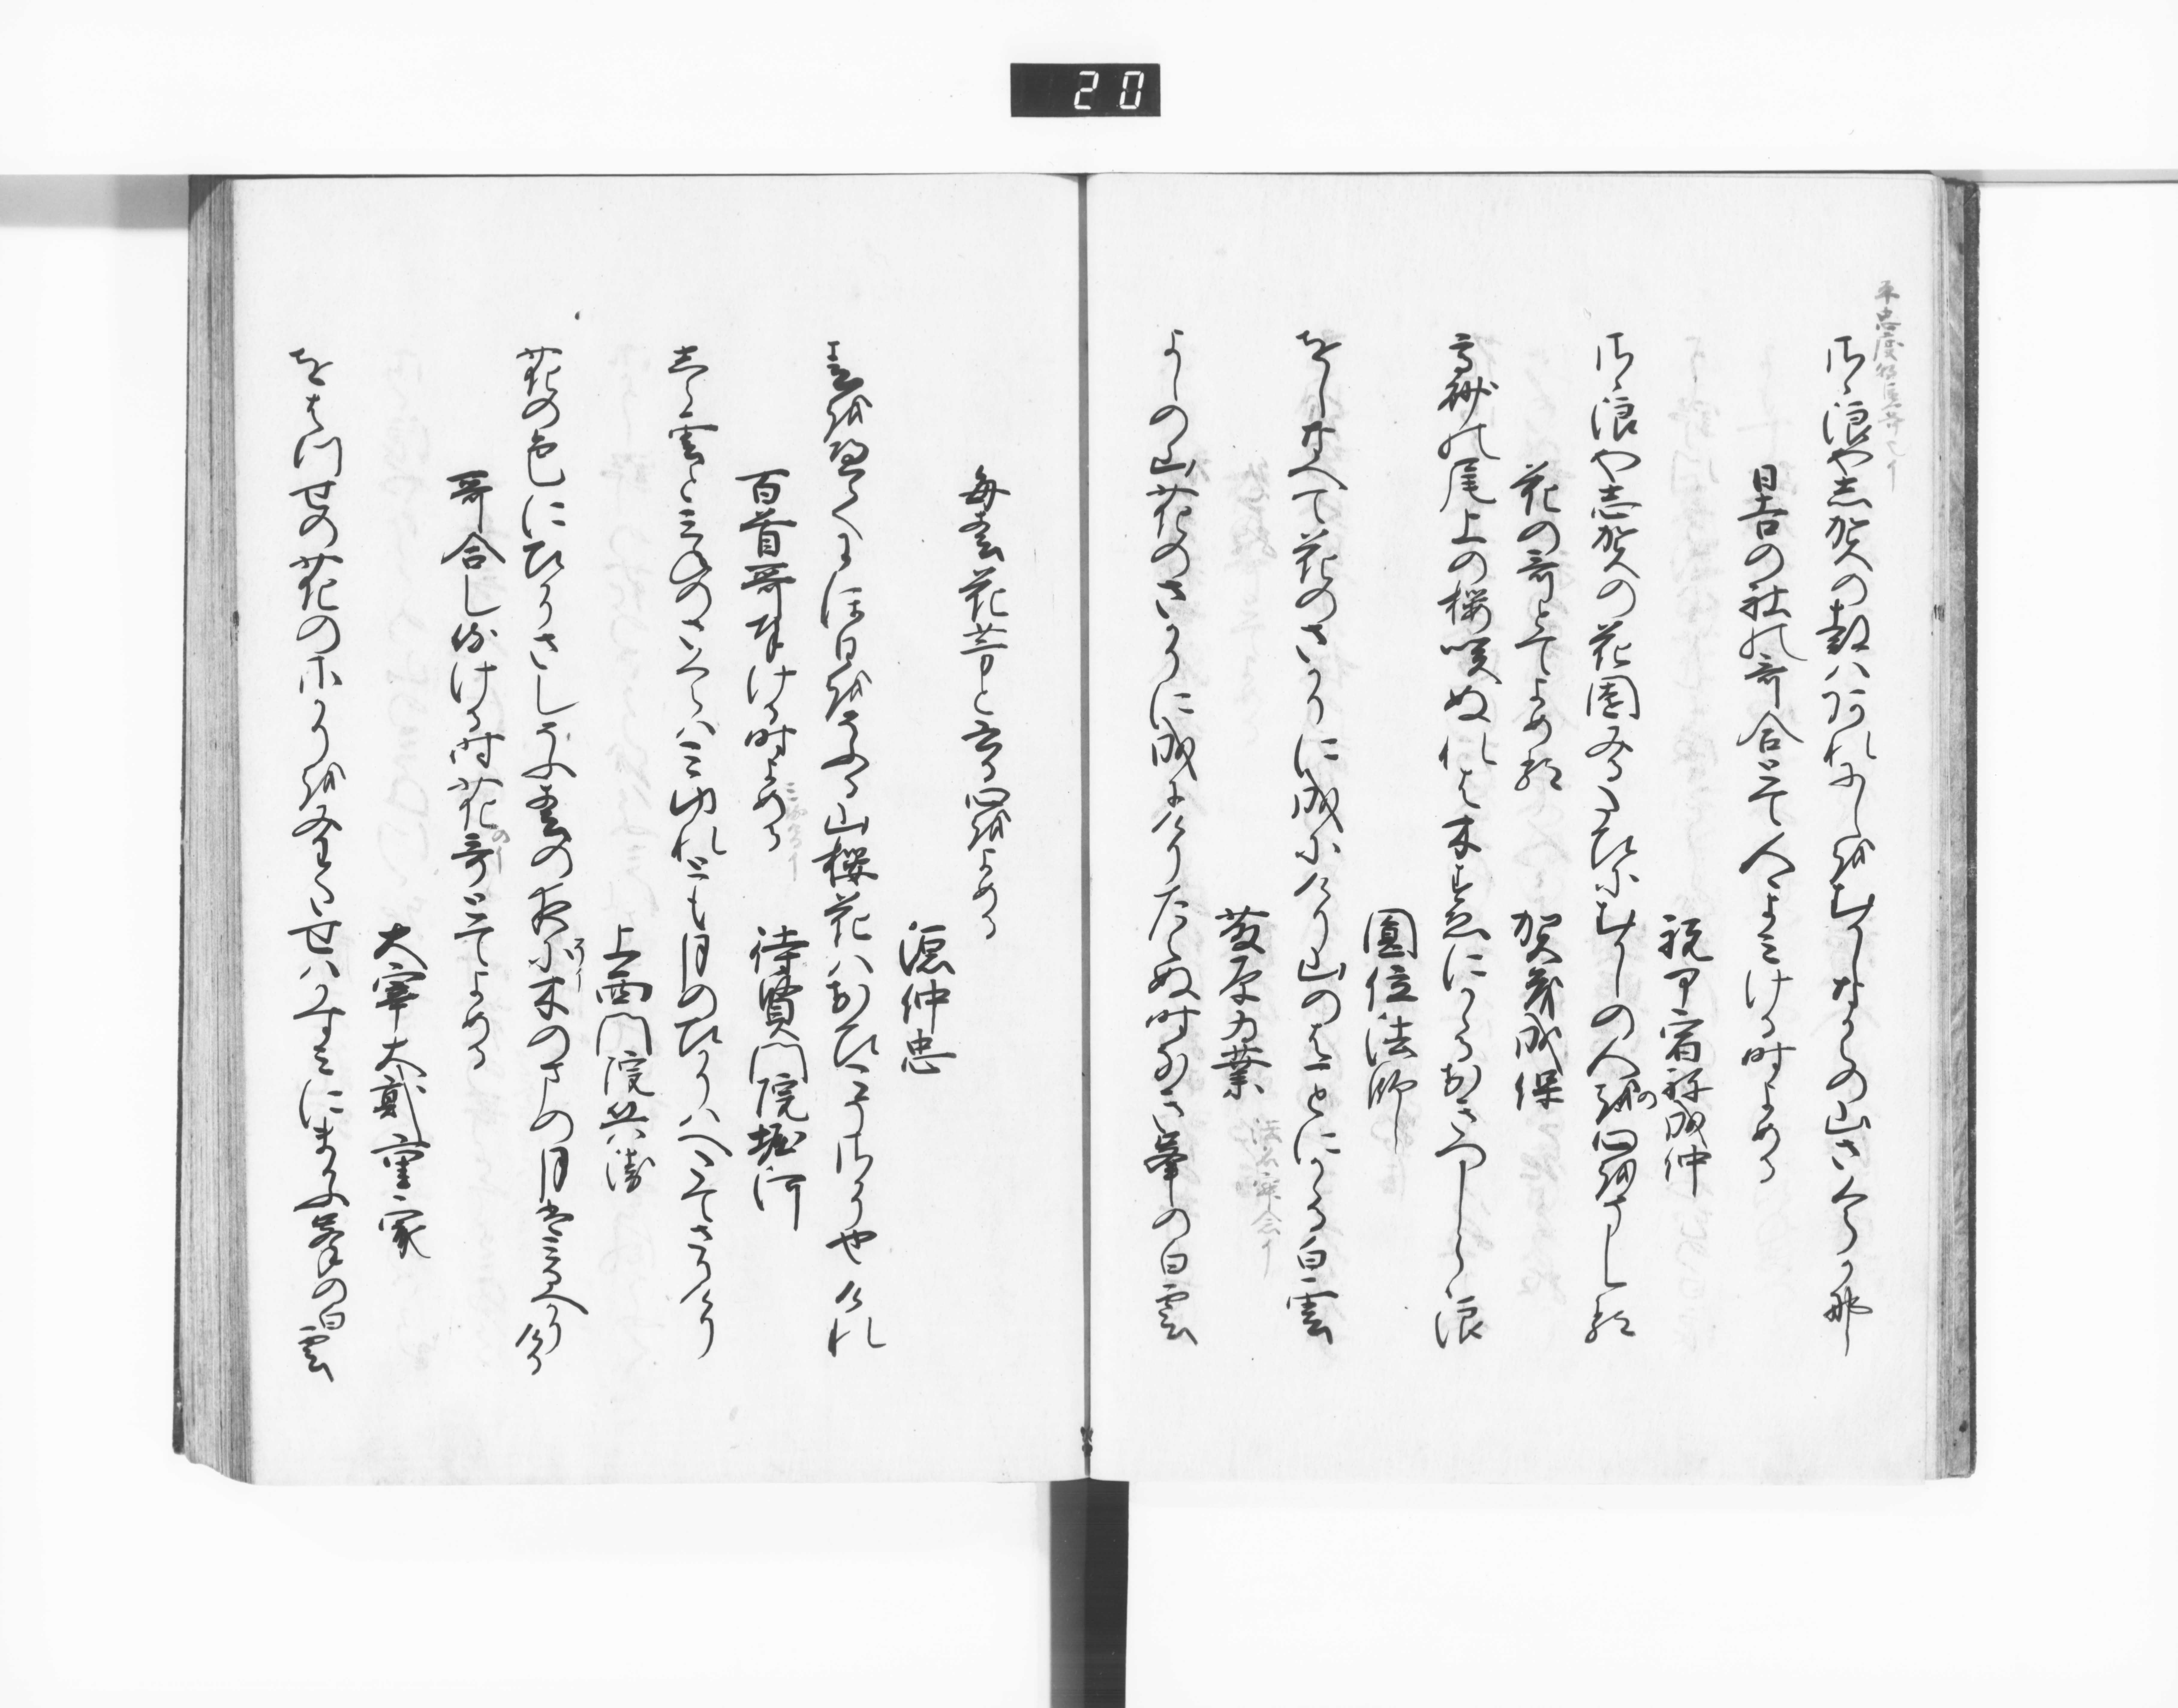 20
平忠度
さゝ浪や志賀の都はあれにしをむかしなからの山さくらかな
日吉の社の哥合とて人よみける時よめる
祝部宿祢成仲
さゝ浪や志賀の花園みるたひにむかしの人の心をそしる
花の哥とてよめる
賀茂成保
高砂の尾上の桜咲ぬれは木すゑにかくるおきつしら浪
圓位法師
をしなへて花のさかりに成にけり山のはことにかゝる白雲
藤原為業
よしの山花のさかりに成にけりたえぬ時なき峯の白雲
毎春花芳と云心をよめる
源仲忠
春をへてにほひをそふる山桜花はおひこそさかりなりけれ
百首哥奉ける時よめる
待賢門院堀河
しら雲とみねのさくらはみゆれとも月のひかりはへたてさりけり
上西門院兵衛
花の色にひかりさしそふ春の夜に木のまの月はみるへかりける
哥合し侍ける時花哥とてよめる
大宰大貳重家
をはつせの花のさかりをみわたせはかすみにまかふ峯の白雲